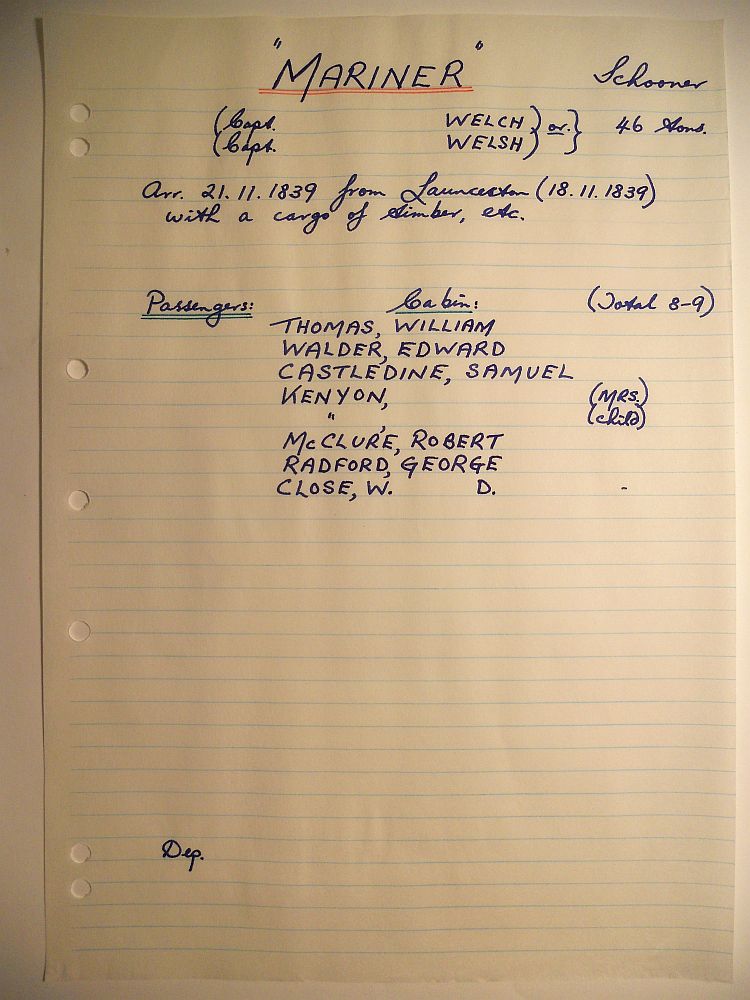 "MARINER" Schooner
(Capt. WELCH) or.} 46 tons.
(Capt. WELSH)
Arr. 21.11.1839 from Launceston (18.11.1839)
with a cargo of timber, etc.
Passengers: Cabin: (Total 8-9)
THOMAS, WILLIAM
WALDER, EDWARD
CASTLEDINE, SAMUEL
KENYON, (MRS.)
" , (child)
McCLURE, ROBERT
RADFORD, GEORGE
CLOSE, W. D. -
Dep.